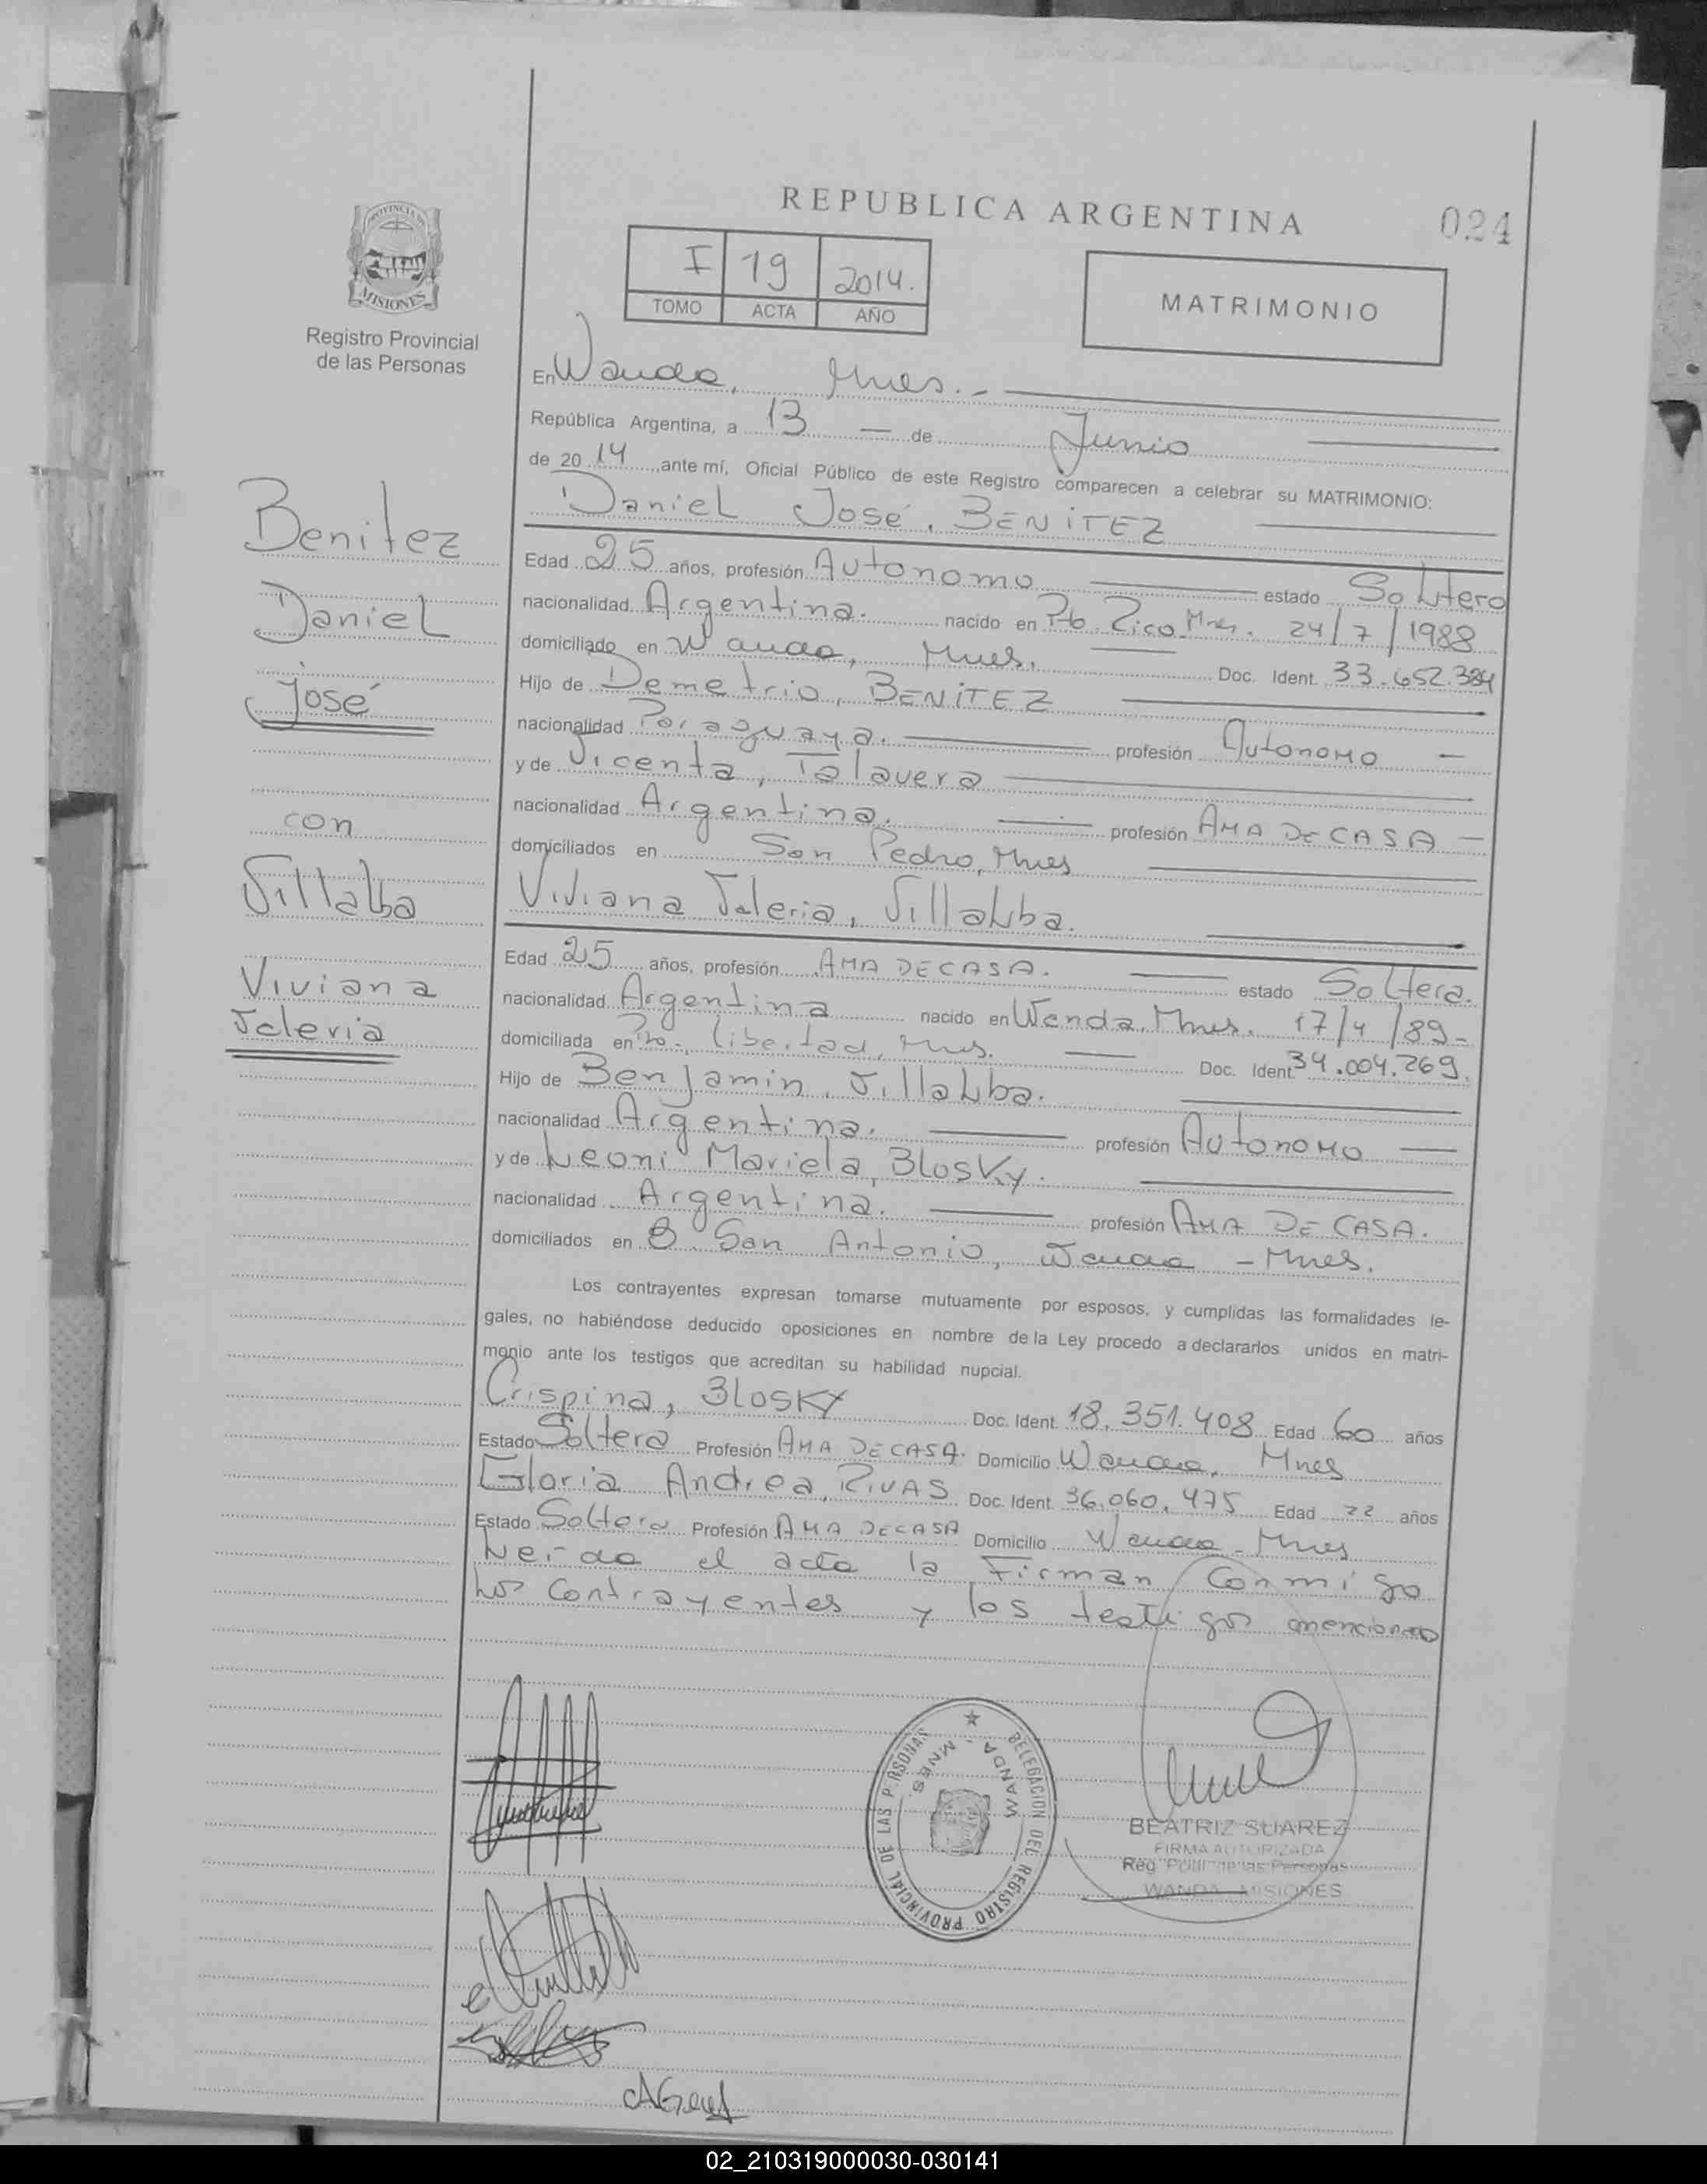 REPUBLICA ARGENTINA
024
PROVINCIA DE
MISIONES
Registro Provincial
de las Personas
I 19 2014.
TOMO ACTA AÑO
MATRIMONIO
En Wanda, Mnes. -
República Argentina, a 13 — de Junio
de 2014, ante mí, Oficial Público de este Registro comparecen a celebrar su MATRIMONIO:
Daniel José, BENITEZ
Edad 25 años, profesión Autonomo estado Soltero
nacionalidad Argentina. nacido en Pto. Rico Mnes. 24/7/1988
domiciliado en Wanda, Mnes. Doc. Ident. 33.652.384
Hijo de Demetrio, BENITEZ
nacionalidad Paraguaya. profesión Autonomo —
y de Vicenta, Talavera
nacionalidad Argentina. profesión AMA DE CASA —
domiciliados en San Pedro, Mnes
Viviana Valeria, Villalba.
Edad 25 años, profesión AMA DE CASA. estado Soltera.
nacionalidad Argentina nacido en Wanda, Mnes. 17/4/89-
domiciliada en Pto. Libertad, Mns. Doc. Ident. 34.004.269.
Hijo de Benjamin, Villalba.
nacionalidad Argentina. profesión Autonomo —
y de Leoni Mariela, Blosky.
nacionalidad Argentina. profesión AMA DE CASA.
domiciliados en B. San Antonio, Wanda - Mnes.
Los contrayentes expresan tomarse mutuamente por esposos, y cumplidas las formalidades le-
gales, no habiéndose deducido oposiciones en nombre de la Ley procedo a declararlos unidos en matri-
monio ante los testigos que acreditan su habilidad nupcial.
Crispina, BLOSKY Doc. Ident. 18.351.408 Edad 60 años
Estado Soltera Profesión AMA DE CASA. Domicilio Wanda, Mnes
Gloria Andrea, RIVAS Doc. Ident. 36.060.475 Edad 22 años
Estado Soltera Profesión AMA DE CASA Domicilio Wanda - Mnes
Leida el acta la Firman Conmigo
Los Contrayentes y los testigos mencionados
Benitez
Daniel
José
con
Villalba
Viviana
Valeria
DELEGACION DEL REGISTRO PROVINCIAL DE LAS PERSONAS
WANDA - MNES.
BEATRIZ SUAREZ
FIRMA AUTORIZADA
Reg. Pcial. de las Personas
WANDA - MISIONES
02_210319000030-030141